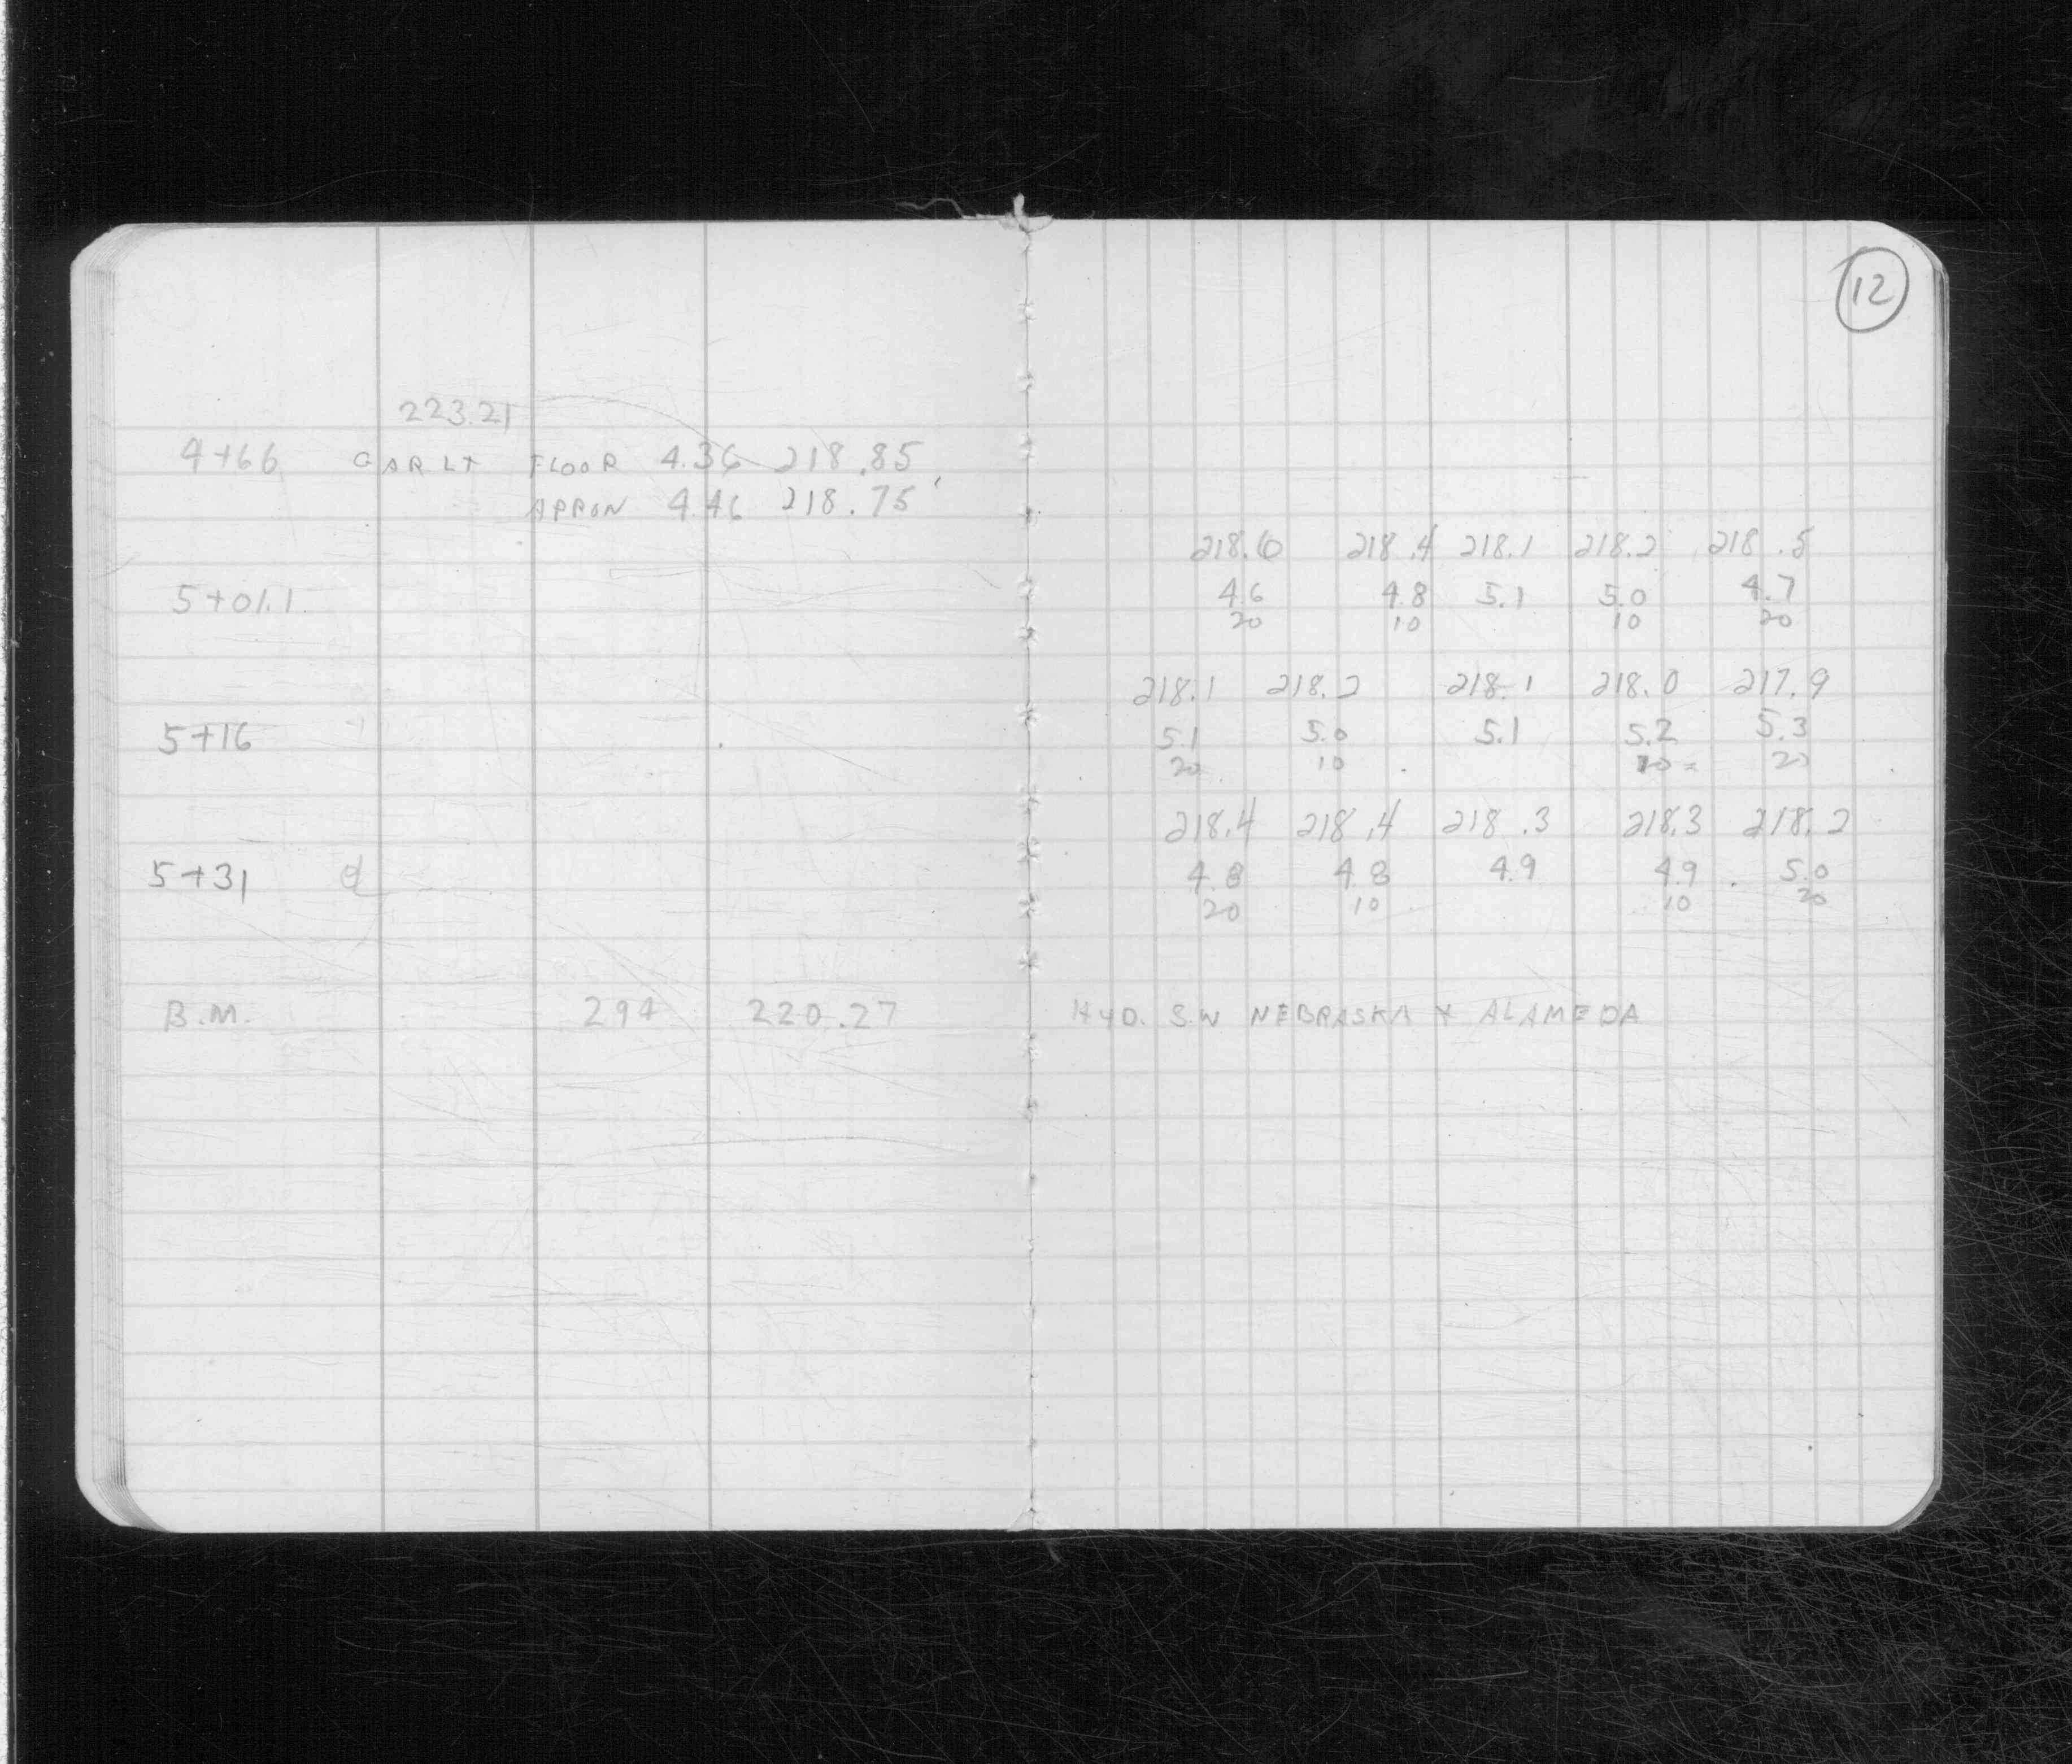 12
223.21
4+66 GAR LT FLOOR 4.36 218.85
APRON 4.46 218.75
218.6 218.4 218.1 218.2 218.5
5+01.1 4.6 4.8 5.1 5.0 4.7
20 10 10 20
218.1 218.2 218.1 218.0 217.9
5+16 5.1 5.0 5.1 5.2 5.3
20 10 10 20
218.4 218.4 218.3 218.3 218.2
5+31 4.8 4.8 4.9 4.9 5.0
20 10 10 20
B.M. 294 220.27 HYD. S.W NEBRASKA + ALAMEDA